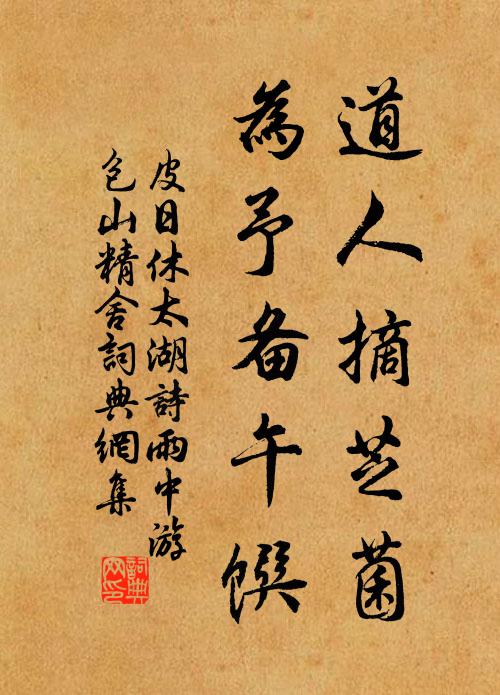 道人摘芝菌
為予备午馔
皮日休太湖詩雨中游
包山精舍詞典網集
詞典网印